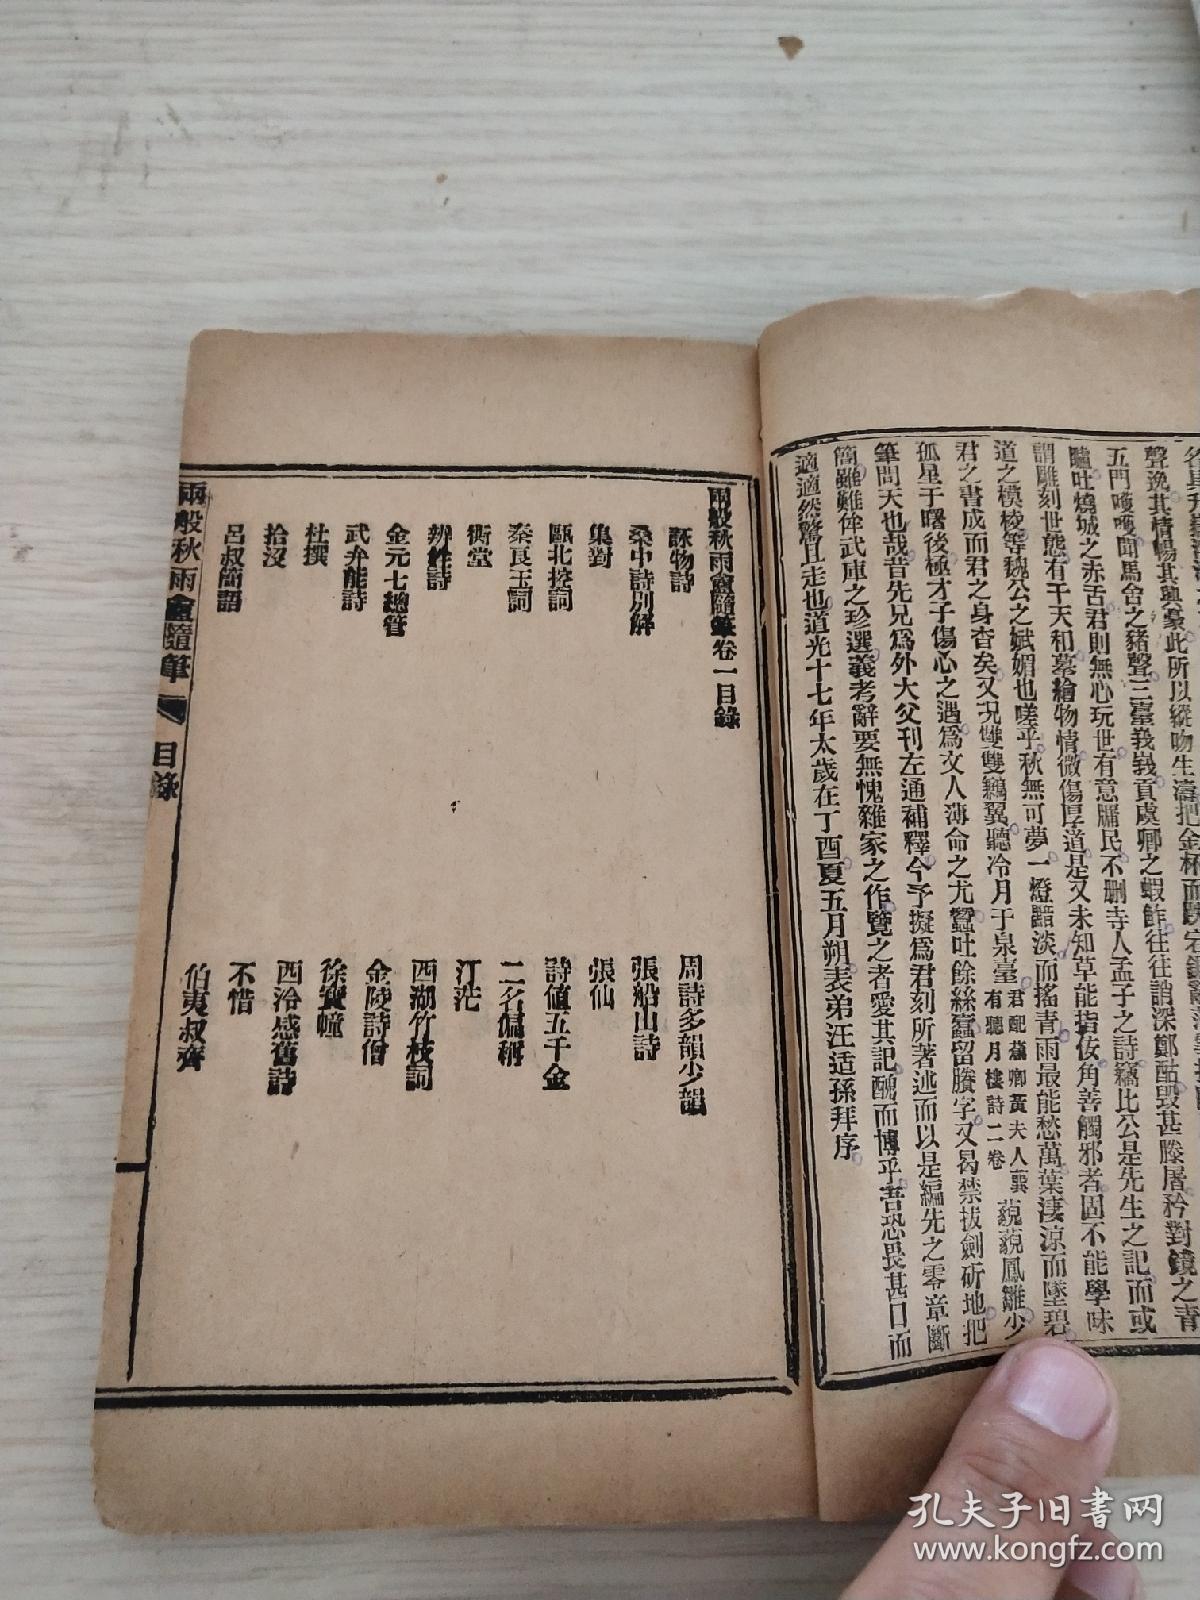 聲挽其情暢其興豪此所以縱吻生濤把金杯而
五門嘐嘐聞馬舍之豬聲三臺義貢虞卿之蝦鮓往往誚深鄭酷毀甚滕屠矜對鏡之青
驢吐燒城之赤舌君則無心玩世有意牖民不删寺人孟子之詩竊比公是先生之記而或
謂雕刻世態有干天和摹繪物情微傷厚道是又未知草能指佞角善觸邪者固不能學味
道之模棱等魏公之嫵媚也嗟乎秋無可夢一燈黯淡而搖青雨最能愁萬葉淒涼而墜碧
君之書成而君之身杳矣又況雙雙鶼翼聽冷月于泉臺君配蘋卿黃夫人巽有聽月樓詩二卷藐藐鳳雛少
孤星于曙後極才子傷心之遇為文人薄命之尤蠶吐餘絲蠹留賸字又曷禁拔劍斫地把
筆問天也哉昔先兄為外大父刊左通補釋今予擬為君刻所著述而以是編先之零章斷
簡雖難侔武庫之珍選義考辭要無愧雜家之作覽之者愛其記醜而博乎吾恐畏甚口而
適適然驚且走也道光十七年太歲在丁酉夏五月朔表弟汪适孫拜序
兩般秋雨盦隨筆卷一目錄
詠物詩 周詩多韻少韻
桑中詩別解 張船山詩
集對 張仙
甌北控詞 詩值五千金
秦良玉詞 二名偏稱
衖堂 汀茫
辨姓詩 西湖竹枝詞
金元七總管 金陵詩僧
武弁能詩 徐寶幢
杜撰 西泠感舊詩
拾沒 不惜
呂叔簡語 伯夷叔齊
兩般秋雨盦隨筆 目錄
孔夫子旧书网
www.kongfz.com